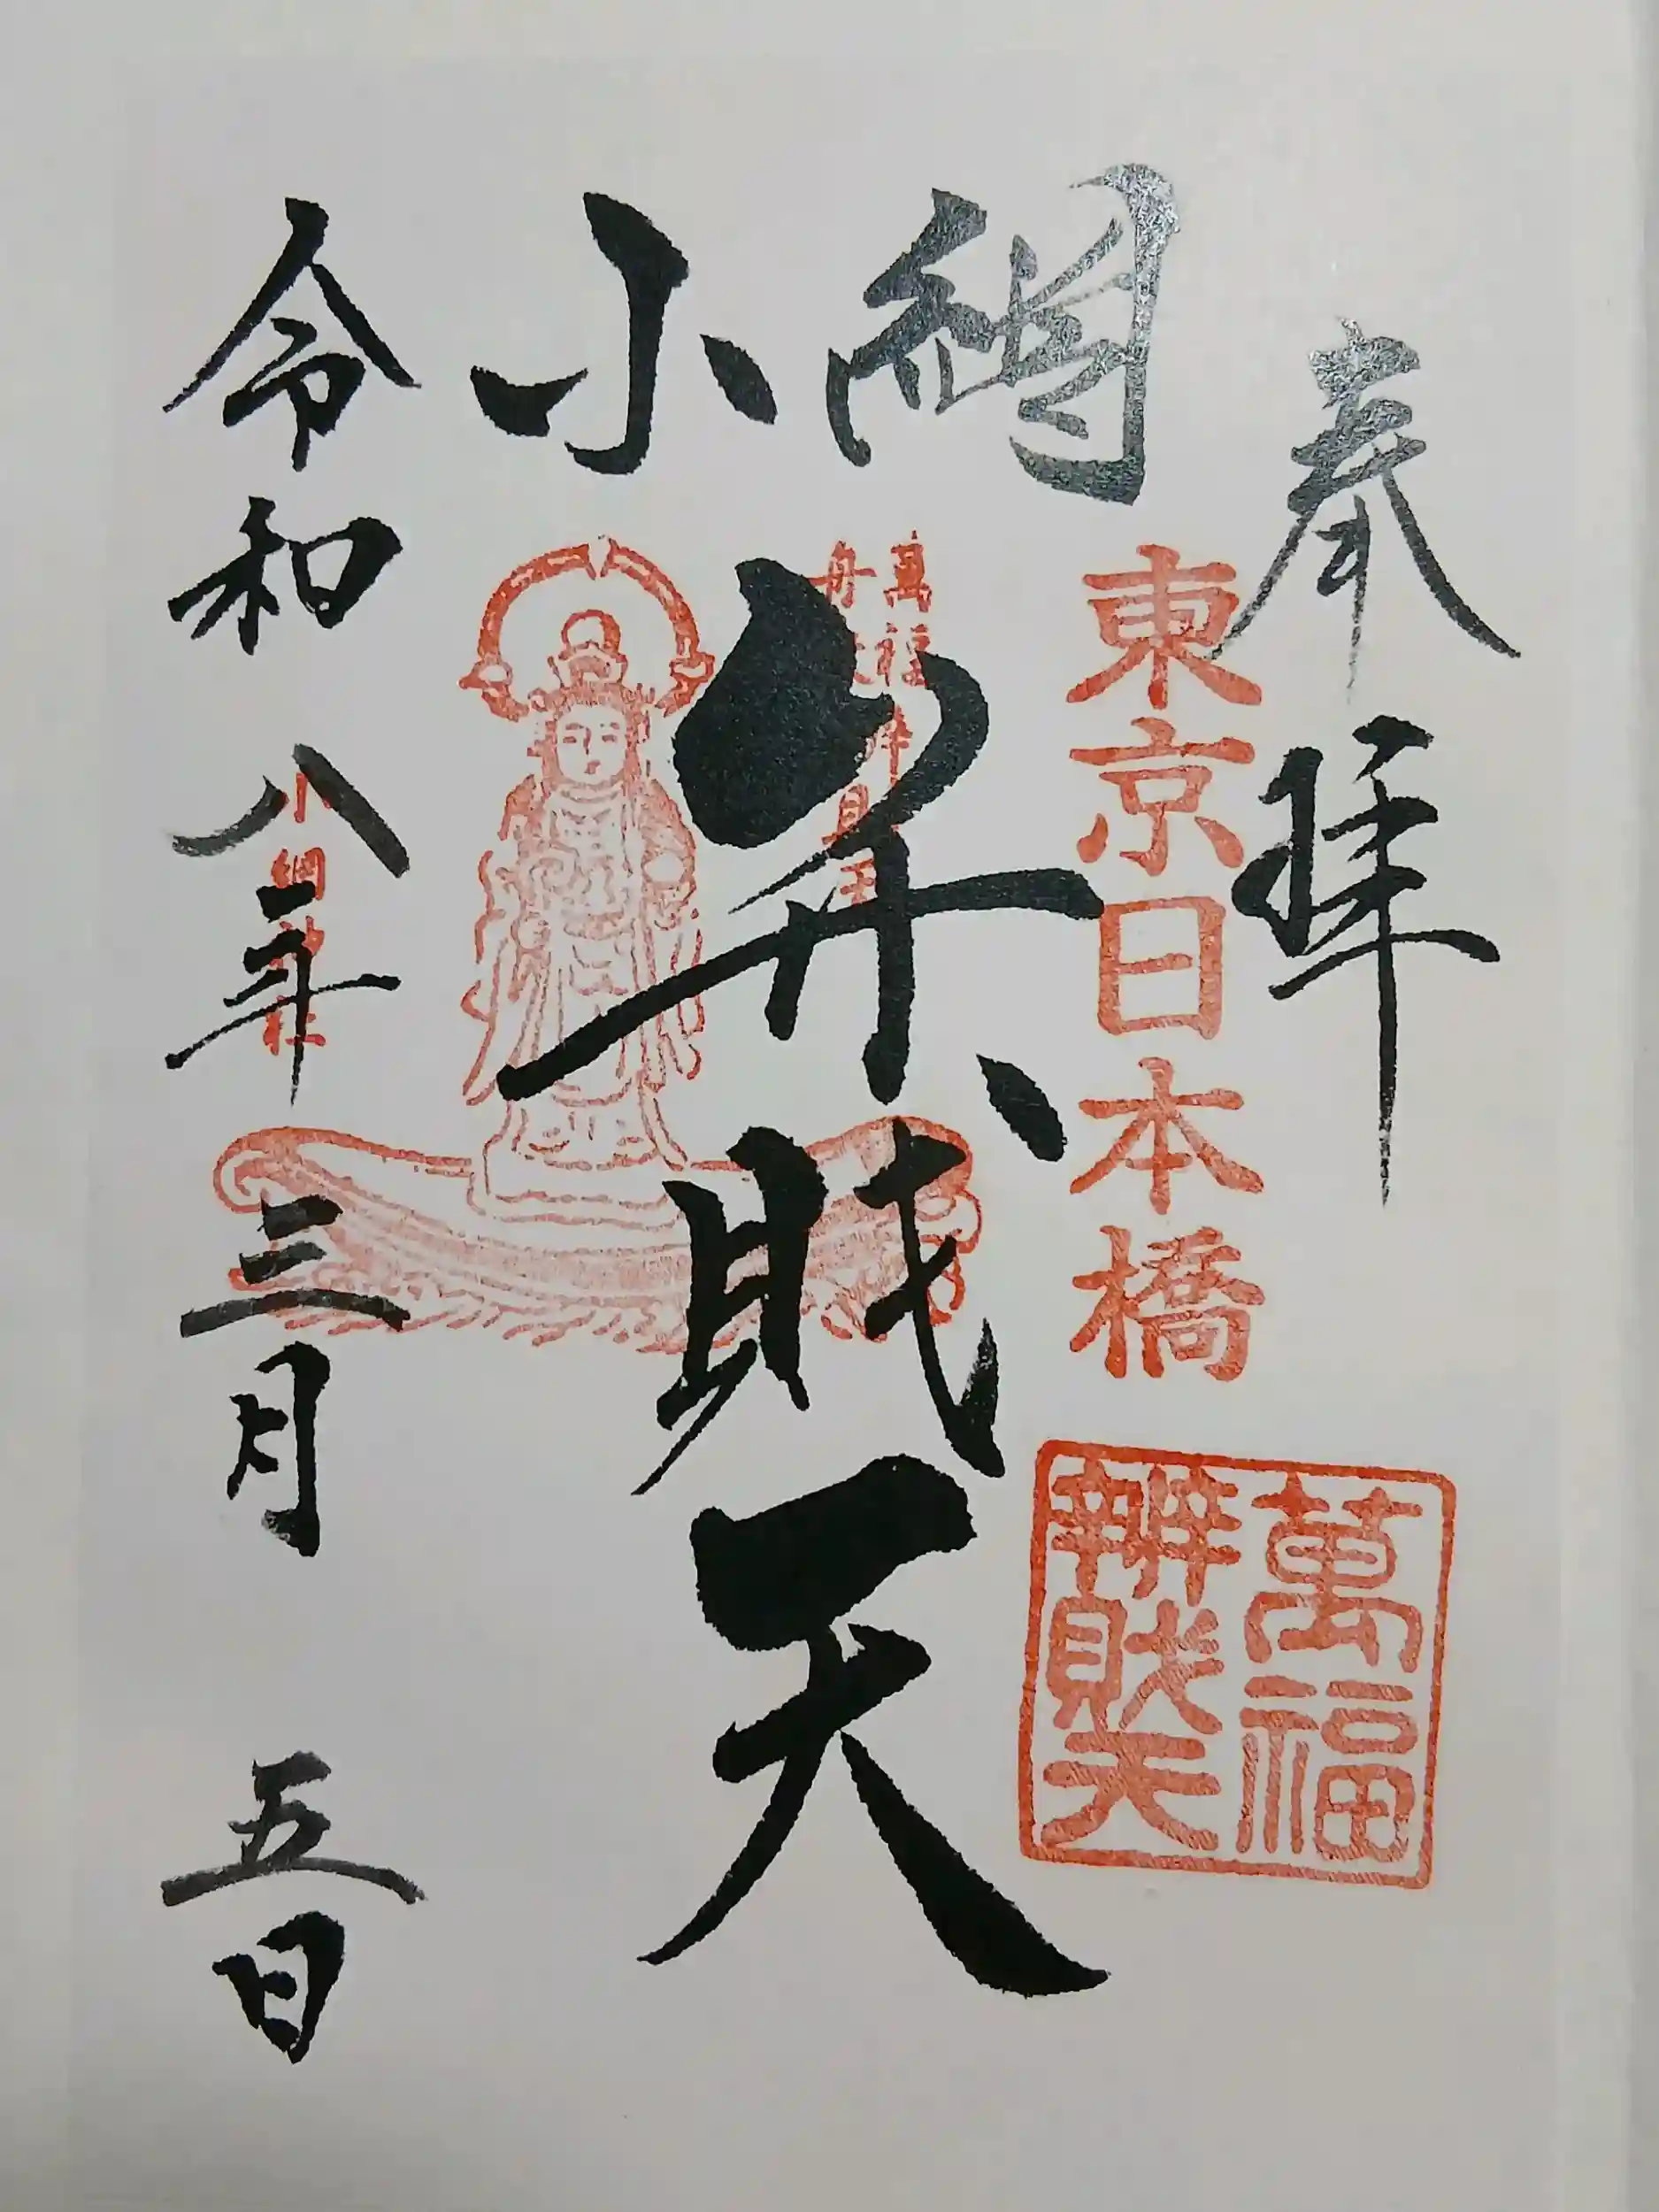 奉拝
東京日本橋
萬福
辨財天
小網
弁財天
令和八年三月五日
小網神社